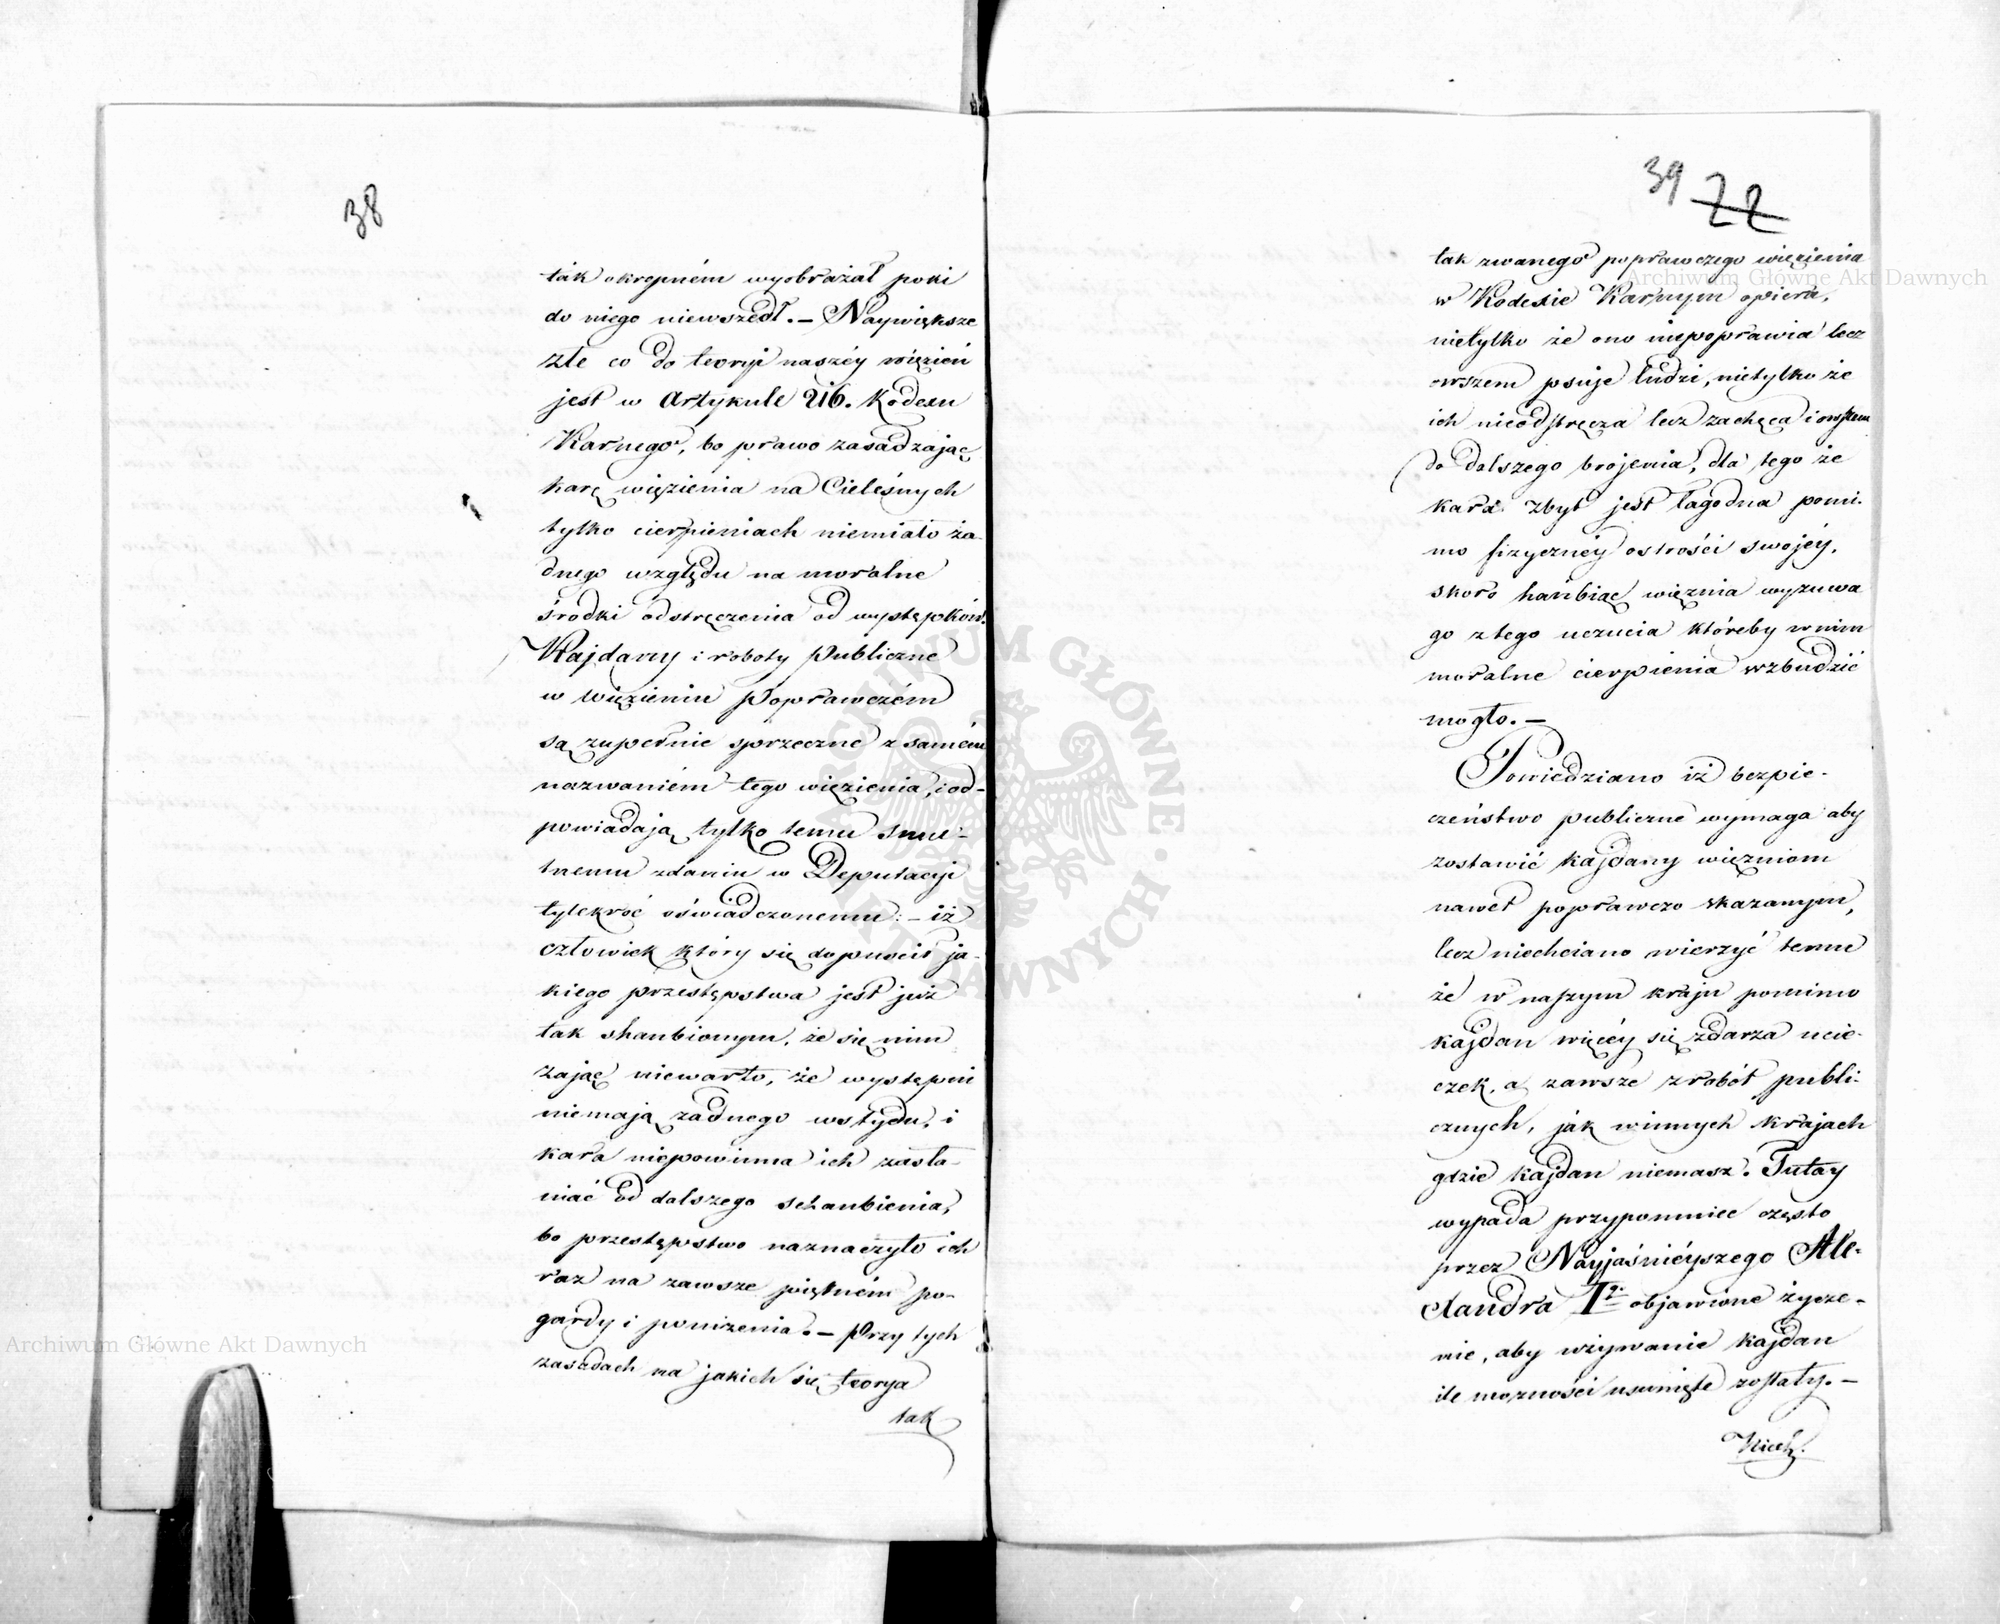 38
tak okropném wyobrażał poki
do niego niewszedł. – Naywiększe
złe co do teoryi naszéy więzień
jest w Artykule 216. Kodexu
Karnego, bo prawo zasadzając
karę więzienia na Cieleśnych
tylko cierpieniach niemiało ża-
dnego względu na moralne
środki odstręczenia od występków.
Kajdany i roboty Publiczne
w więzieniu Poprawczém
są zupełnie sprzeczne z samém
nazwaniém tego więzienia, i od-
powiadają tylko temu smu-
tnemu zdaniu w Deputacyi
tylekroć oświadczonemu: – iż
człowiek który się dopuścił ja-
kiego przestępstwa jest już
tak shanbionym, że się nim
zająć niewarto, że występni
niemają żadnego wstydu, i
kara niepowinna ich zasła-
niać od dalszego schanbienia,
bo przestępstwo naznaczyło ich
raz na zawsze piętném po-
gardy i poniżenia. – Przy tych
zasadach na jakich się teorya
tak
39 22
tak zwanego poprawczego więzienia
w Kodexie Karnym opiera,
nietylko że ono niepoprawia lecz
owszem psuje ludzi, nietylko że
ich nieodstręcza lecz zachęca i owszem
do dalszego brojenia, dla tego że
kara zbyt jest łagodna pomi-
mo fizycznéy ostrości swojéy,
skoro hańbiąc więźnia wyzuwa
go z tego uczucia któreby w nim
moralne cierpienia wzbudzić
mogło. –
Powiedziano iż bezpie-
czeństwo publiczne wymaga aby
zostawić kajdany więzniom
nawet poprawczo skazanym,
lecz niechciano wierzyć temu
że w naszym kraju pomimo
kajdan więcéy się zdarza ucie-
czek, a zawsze z robót publi-
cznych, jak w innych krajach
gdzie kajdan niemasz. Tutay
wypada przypomniec często
przez Nayjaśniéyszego Ale-
xandra Igo objawione życze-
nie, aby używanie kajdan
ile możności usunięte zostały. –
Niech
Archiwum Główne Akt Dawnych
Archiwum Główne Akt Dawnych
ARCHIWUM GŁÓWNE · AKT DAWNYCH ·